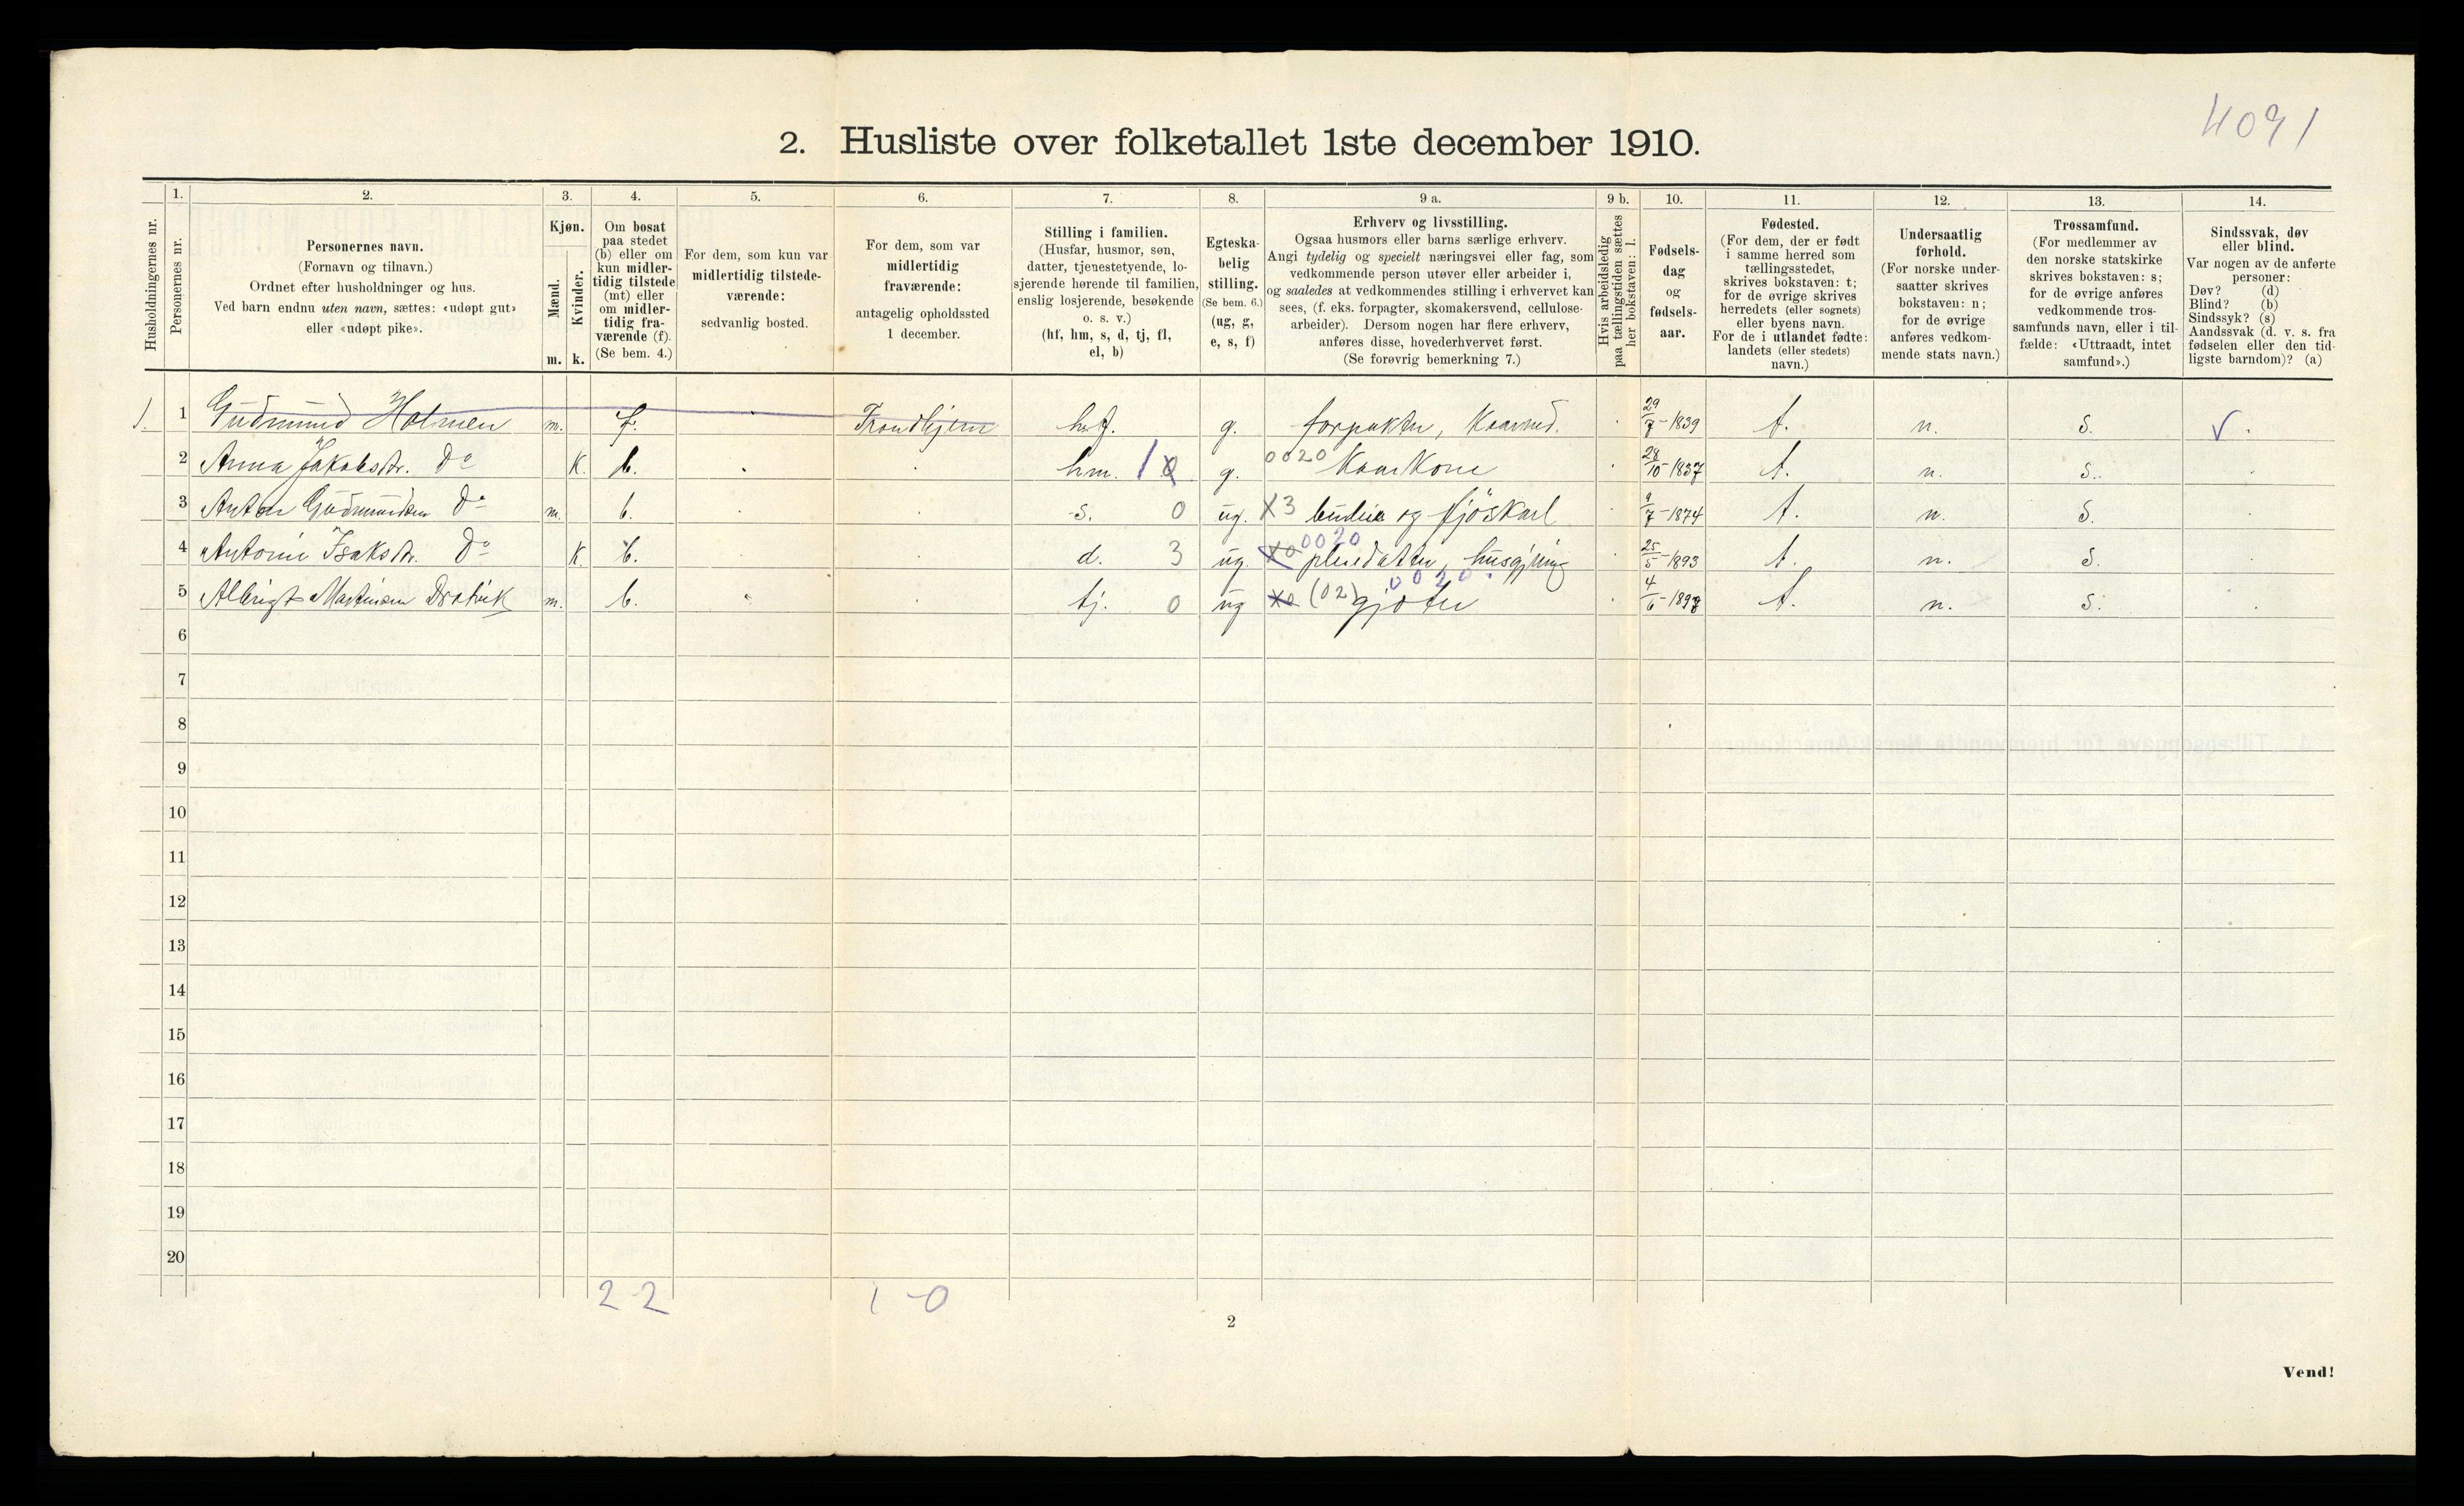 4091
2. Husliste over folketallet 1ste december 1910.
Husholdningernes nr.
1.
Personernes nr.
2.
Personernes navn.
(Fornavn og tilnavn.)
Ordnet efter husholdninger og hus.
Ved barn endnu uten navn, sættes: «udøpt gut»
eller «udøpt pike».
3.
Kjøn.
Mænd.
Kvinder.
m. k.
4.
Om bosat
paa stedet
(b) eller om
kun midler-
tidig tilstede
(mt) eller
om midler-
tidig fra-
værende (f).
(Se bem. 4.)
5.
For dem, som kun var
midlertidig tilstede-
værende:
sedvanlig bosted.
6.
For dem, som var
midlertidig
fraværende:
antagelig opholdssted
1 december.
7.
Stilling i familien.
(Husfar, husmor, søn,
datter, tjenestetyende, lo-
sjerende hørende til familien,
enslig losjerende, besøkende
o. s. v.)
(hf, hm, s, d, tj, fl,
el, b)
8.
Egteska-
belig
stilling.
(Se bem. 6.)
(ug, g,
e, s, f)
9 a.
Erhverv og livsstilling.
Ogsaa husmors eller barns særlige erhverv.
Angi tydelig og specielt næringsvei eller fag, som
vedkommende person utøver eller arbeider i,
og saaledes at vedkommendes stilling i erhvervet kan
sees, (f. eks. forpagter, skomakersvend, cellulose-
arbeider). Dersom nogen har flere erhverv,
anføres disse, hovederhvervet først.
(Se forøvrig bemerkning 7.)
9 b.
Hvis arbeidsledig
paa tællingstiden sættes
her bokstaven: l.
10.
Fødsels-
dag
og
fødsels-
aar.
11.
Fødested.
(For dem, der er født
i samme herred som
tællingsstedet,
skrives bokstaven: t;
for de øvrige skrives
herredets (eller sognets)
eller byens navn.
For de i utlandet fødte:
landets (eller stedets)
navn.)
12.
Undersaatlig
forhold.
(For norske under-
saatter skrives
bokstaven: n;
for de øvrige
anføres vedkom-
mende stats navn.)
13.
Trossamfund.
(For medlemmer av
den norske statskirke
skrives bokstaven: s;
for de øvrige anføres
vedkommende tros-
samfunds navn, eller i til-
fælde: «Uttraadt, intet
samfund».)
14.
Sindssvak, døv
eller blind.
Var nogen av de anførte
personer:
Døv? (d)
Blind? (b)
Sindssyk? (s)
Aandssvak (d. v. s. fra
fødselen eller den tid-
ligste barndom)? (a)
1. 1 Gudmund Holmen m. f. Trondhjem hf. g. forpakter, Kaarmd. 29/7-1839 t. n. s.
2 Anna Jakobsdr. Do K. b. hm. 1 0 g. 0020 Kaarkone 28/10-1837 t. n. s.
3 Anton Gudmundsen Do m. b. s. 0 ug. X3 budeie og fjöskarl 9/7-1874 t. n. s.
4 Antonie Isaksdr. Do K b. d. 3 ug. X0 0020 pleiedatter, husgjerning 25/5-1893 t. n. s.
5 Albrigt Martinsen Dratvik m. b. tj. 0 ug X0 (02) 0020 gjæter 4/6-1898 t. n. s.
6
7
8
9
10
11
12
13
14
15
16
17
18
19
20
2-2 1-0
2
Vend!